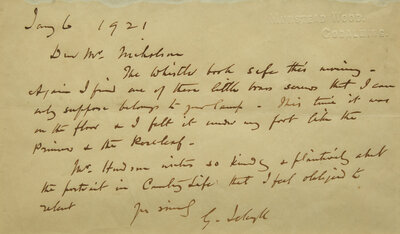 MUNSTEAD WOOD,
GODALMING.
Jany 6 1921
Dear Mr Nicholson
The Whistler book safe this morning -
Again I find one of these little brass screws that I can
only suppose belongs to your lamp - This time it was
on the floor & I felt it under my foot like the
Princess & the Roseleaf.
Mr. Hudson writes so kindly & plaintively abt
the portrait in Country Life that I feel obliged to
relent
yrs sincly G. Jekyll